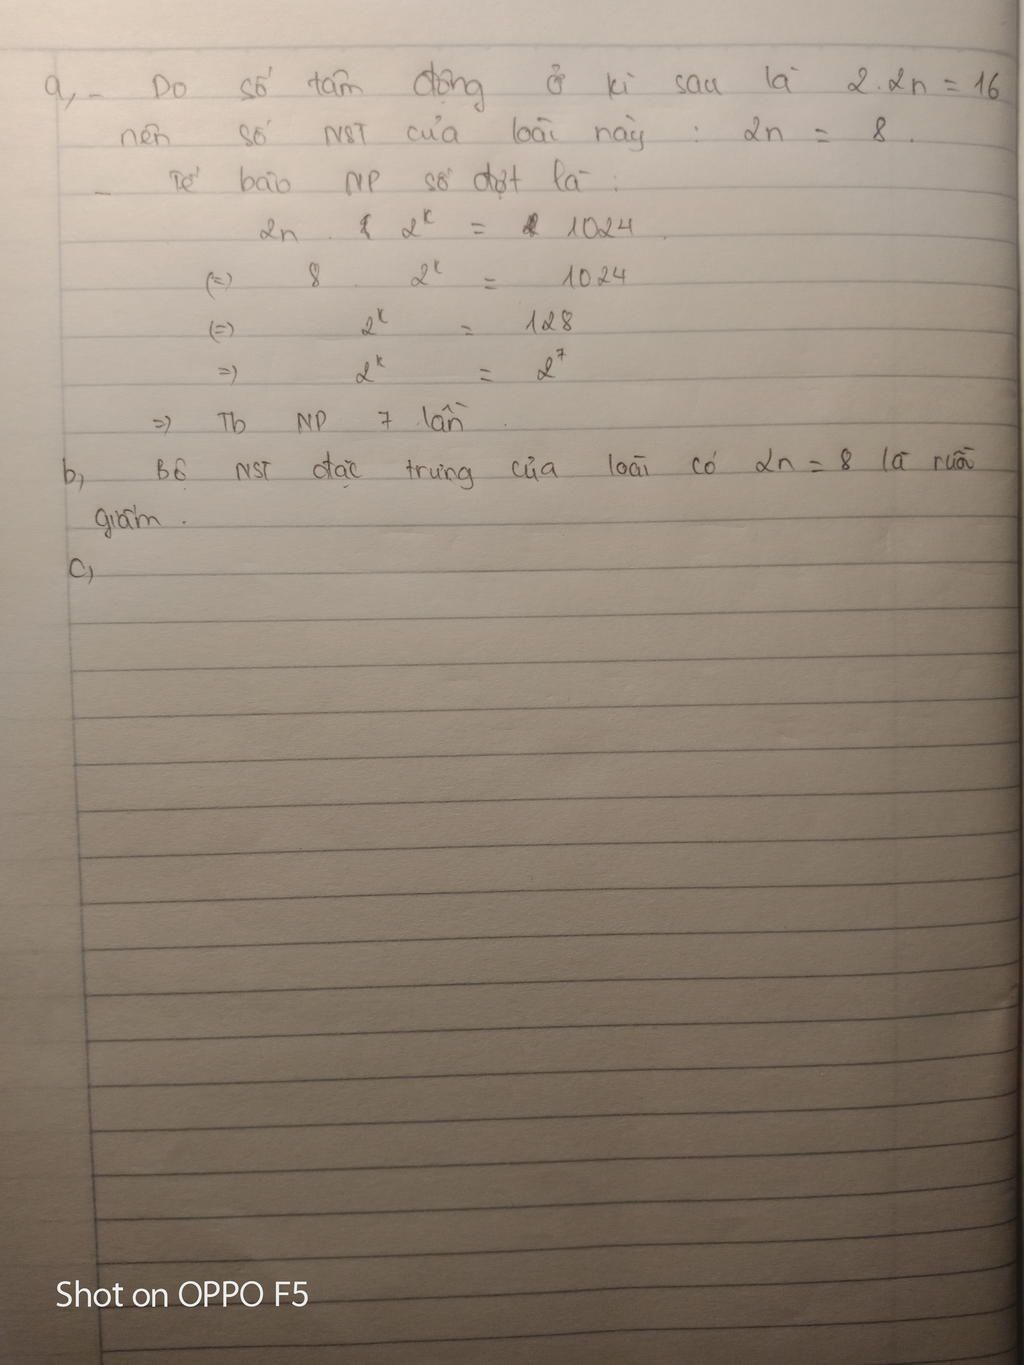 a, - Do số tâm động ở kì sau là 2.2n = 16
nên số NST của loài này : 2n = 8.
- Tế bào NP số đợt là :
2n . 2ᵏ = 1024.
(=) 8 . 2ᵏ = 1024
(=) 2ᵏ = 128
=) 2ᵏ = 2⁷
=) Tb NP 7 lần .
b, Bộ NST đặc trưng của loài có 2n = 8 là ruồi
giấm .
c,
Shot on OPPO F5